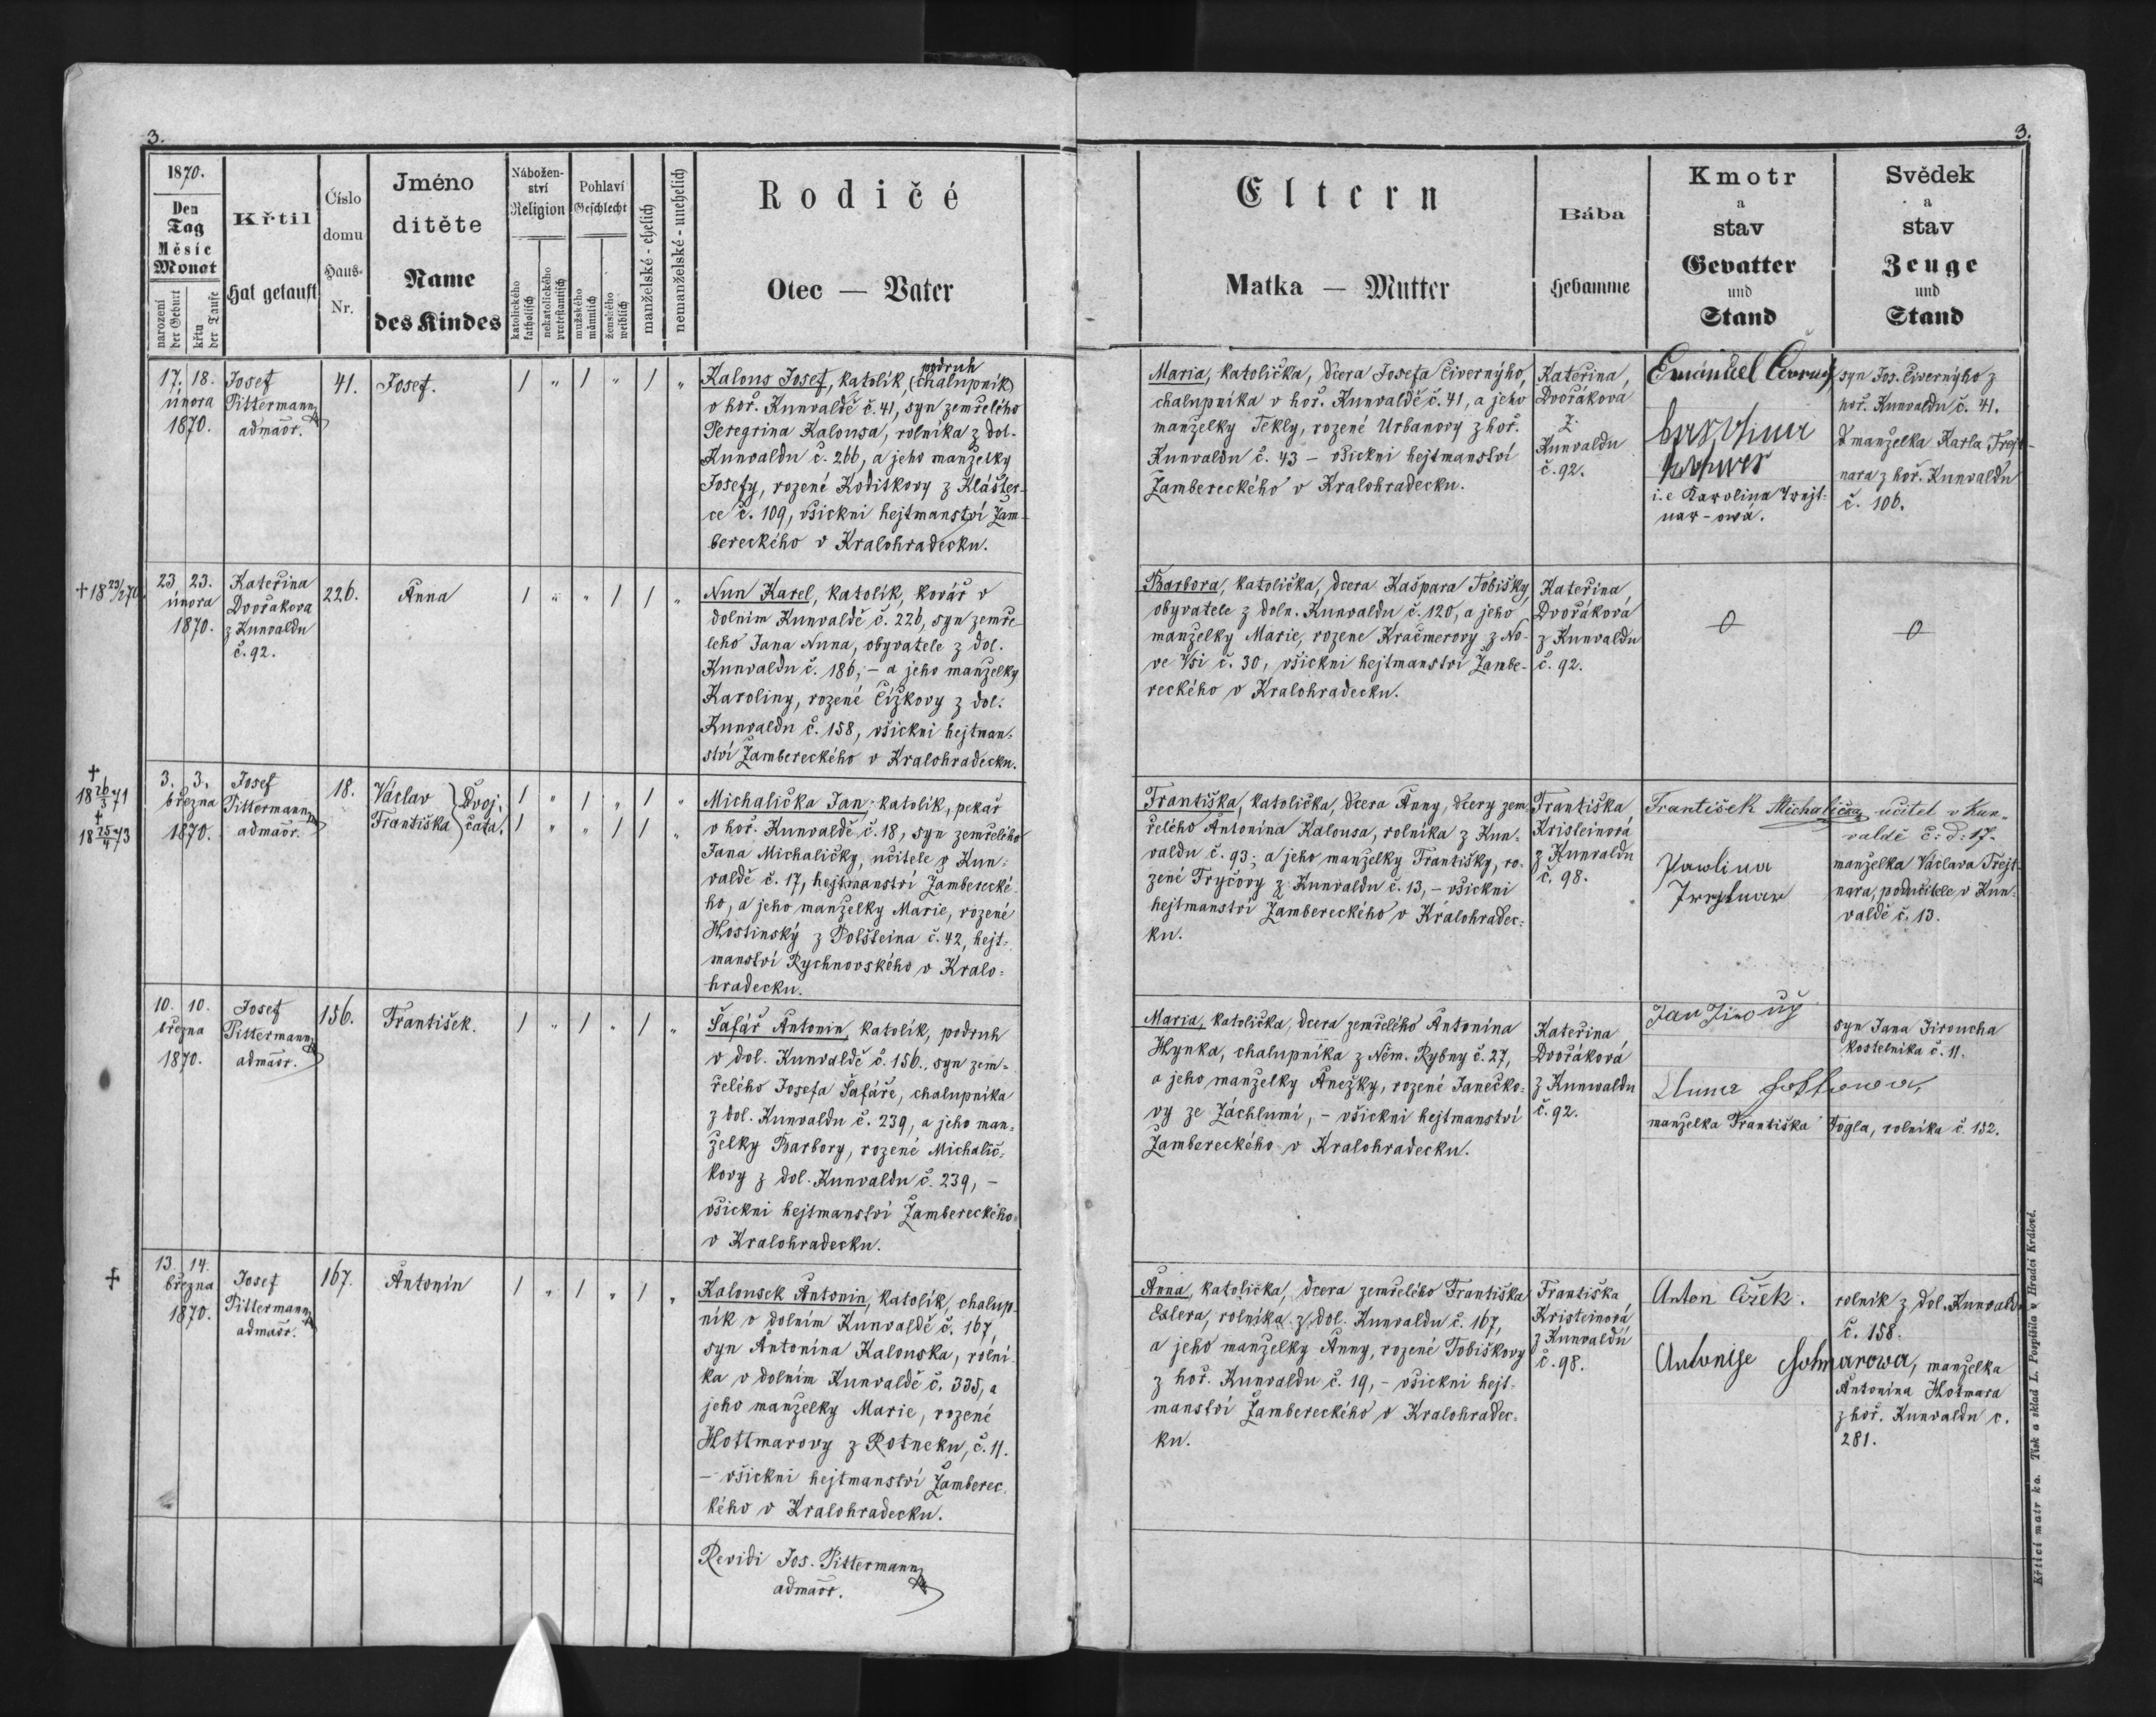 3.
3.
1870.
Den
Tag
Měsíc
Monat
narození
der Geburt
křtu
der Taufe
Křtil
Hat getauft
Číslo
domu
Haus-
Nr.
Jméno
dítěte
Name
des Kindes
Nábožen-
ství
Religion
katolického
katholisch
nekatolického
protestantisch
Pohlaví
Geschlecht
mužského
männlich
ženského
weiblich
manželské - ehelich
nemanželské - unehelich
Rodičé
Otec — Vater
Eltern
Matka — Mutter
Bába
Hebamme
Kmotr
a
stav
Gevatter
und
Stand
Svědek
a
stav
Zeuge
und
Stand
17. 18.
února
1870.
Josef
Pittermann
admāor.
41.
Josef.
1 „ 1 „ 1 „
podruh
Kalous Josef, katolík, (chalupník)
v hoř. Kunvaldě č. 41, syn zemřelého
Peregrina Kalousa, rolníka z dol.
Kunvaldu č. 266, a jeho manželky
Josefy, rozené Koditkovy z Klášter-
ce č. 109, všickni hejtmanství Žam-
bereckého v Kralohradecku.
Maria, katolička, dcera Josefa Čivernýho,
chalupníka v hoř. Kunvaldě č. 41, a jeho
manželky Tekly, rozené Urbanovy z hoř.
Kunvaldu č. 43 – všickni hejtmanství
Žambereckého v Kralohradecku.
Kateřina
Dvořákova
z
Kunvaldu
č. 92.
Emánuel
i. e Karolina Trejt-
nar-owá.
syn Jos. Čivernýho z
hoř. Kunvaldu č. 41.
manželka Karla Trejt-
nara z hoř. Kunvaldu
č. 106.
+ 18 23/2 70.
23 23.
února
1870.
Kateřina
Dvořákova
z Kunvaldu
č. 92.
226.
Anna
1 „ „ 1 1 „
Nun Karel, katolík, kovář v
dolním Kunvaldě č. 226, syn zemře-
lého Jana Nuna, obyvatele z dol.
Kunvaldu č. 186, – a jeho manželky
Karoliny, rozené Čižkovy z dol.
Kunvaldu č. 158, všickni hejtman-
ství Žambereckého v Kralohradecku.
Barbora, katolička, dcera Kašpara Tobišky,
obyvatele z doln. Kunvaldu č. 120, a jeho
manželky Marie, rozene Kračmerovy z No-
ve Vsi č. 30, všickni hejtmanství Žambe-
reckého v Kralohradecku.
Kateřina,
Dvořáková
z Kunvaldu
č. 92.
0
0
+
18 26/3 71
+
18 25/4 73
3. 3.
března
1870.
Josef
Pittermann
admāor.
18.
Václav
Františka
Dvoj-
čata.
1 „ 1 „ 1 „
1 „ „ 1 1 „
Michalička Jan, katolík, pekař
v hoř. Kunvaldě č. 18, syn zemřelého
Jana Michaličky, učitele v Kun-
valdě č. 17, hejtmanství Žamberecké-
ho, a jeho manželky Marie, rozené
Hostinský z Potšteina č. 42, hejt-
manství Rychnovského v Kralo-
hradecku.
Františka, katolička, dcera Anny, dcery zem-
řelého Antonína Kalousa, rolníka z Kun-
valdu č. 93; a jeho manželky Františky, ro-
zené Tryčovy z Kunvaldu č. 13, – všickni
hejtmanství Žambereckého v Kralohradec-
ku.
Františka
Kristeinová
z Kunvaldu
č. 98.
František Michalička učitel v Kun-
valdě č: d: 17.
Pawlina
manželka Václava Trejt-
nara, podučitele v Kun-
valdě č. 13.
10. 10.
března
1870.
Josef
Pittermann
admāor.
156.
František.
1 „ 1 „ 1 „
Šafář Antonin, katolík, podruh
v dol. Kunvaldě č. 156., syn zem-
řelého Josefa Šafáře, chalupníka
z dol. Kunvaldu č. 239, a jeho man-
želky Barbory, rozené Michalič-
kovy z dol. Kunvaldu č. 239, –
všickni hejtmanství Žambereckého
v Kralohradecku.
Maria, katolička, dcera zemřelého Antonína
Hynka, chalupníka z Něm. Rybny č. 27,
a jeho manželky Anežky, rozené Janečko-
vy ze Záchlumí, – všickni hejtmanství
Žambereckého v Kralohradecku.
Kateřina
Dvořáková
z Kunwaldu
č. 92.
Jan
syn Jana Jiroucha
kostelníka č. 11.
Anna
manželka Františka Fogla, rolníka č. 152.
+
13. 14.
března
1870.
Josef
Pittermann
admāor.
167.
Antonín
1 „ 1 „ 1 „
Kalousek Antonin, katolík, chalup-
ník v dolním Kunvaldě č. 167,
syn Antonína Kalouska, rolní-
ka v dolním Kunvaldě č. 335, a
jeho manželky Marie, rozené
Hottmarovy z Rotneku, č. 11.
– všickni hejtmanství Žamberec-
kého v Kralohradecku.
Anna, katolička, dcera zemřelého Františka
Eslera, rolníka z dol. Kunvaldu č. 167,
a jeho manželky Anny, rozené Tobiškovy
z hoř. Kunvaldu č. 19, – všickni hejt-
manství Žambereckého v Kralohradec-
ku.
Františka
Kristeinová
z Kunvaldu
č. 98.
Anton Čižek.
rolník z dol. Kunvaldu
č. 158.
manželka
Antonína Hotmara
z hoř. Kunvaldu č.
281.
Revidi Jos. Pittermann
admāor.
Křticí matrika. Tisk a sklad L. Pospíšila v Hradci Králové.